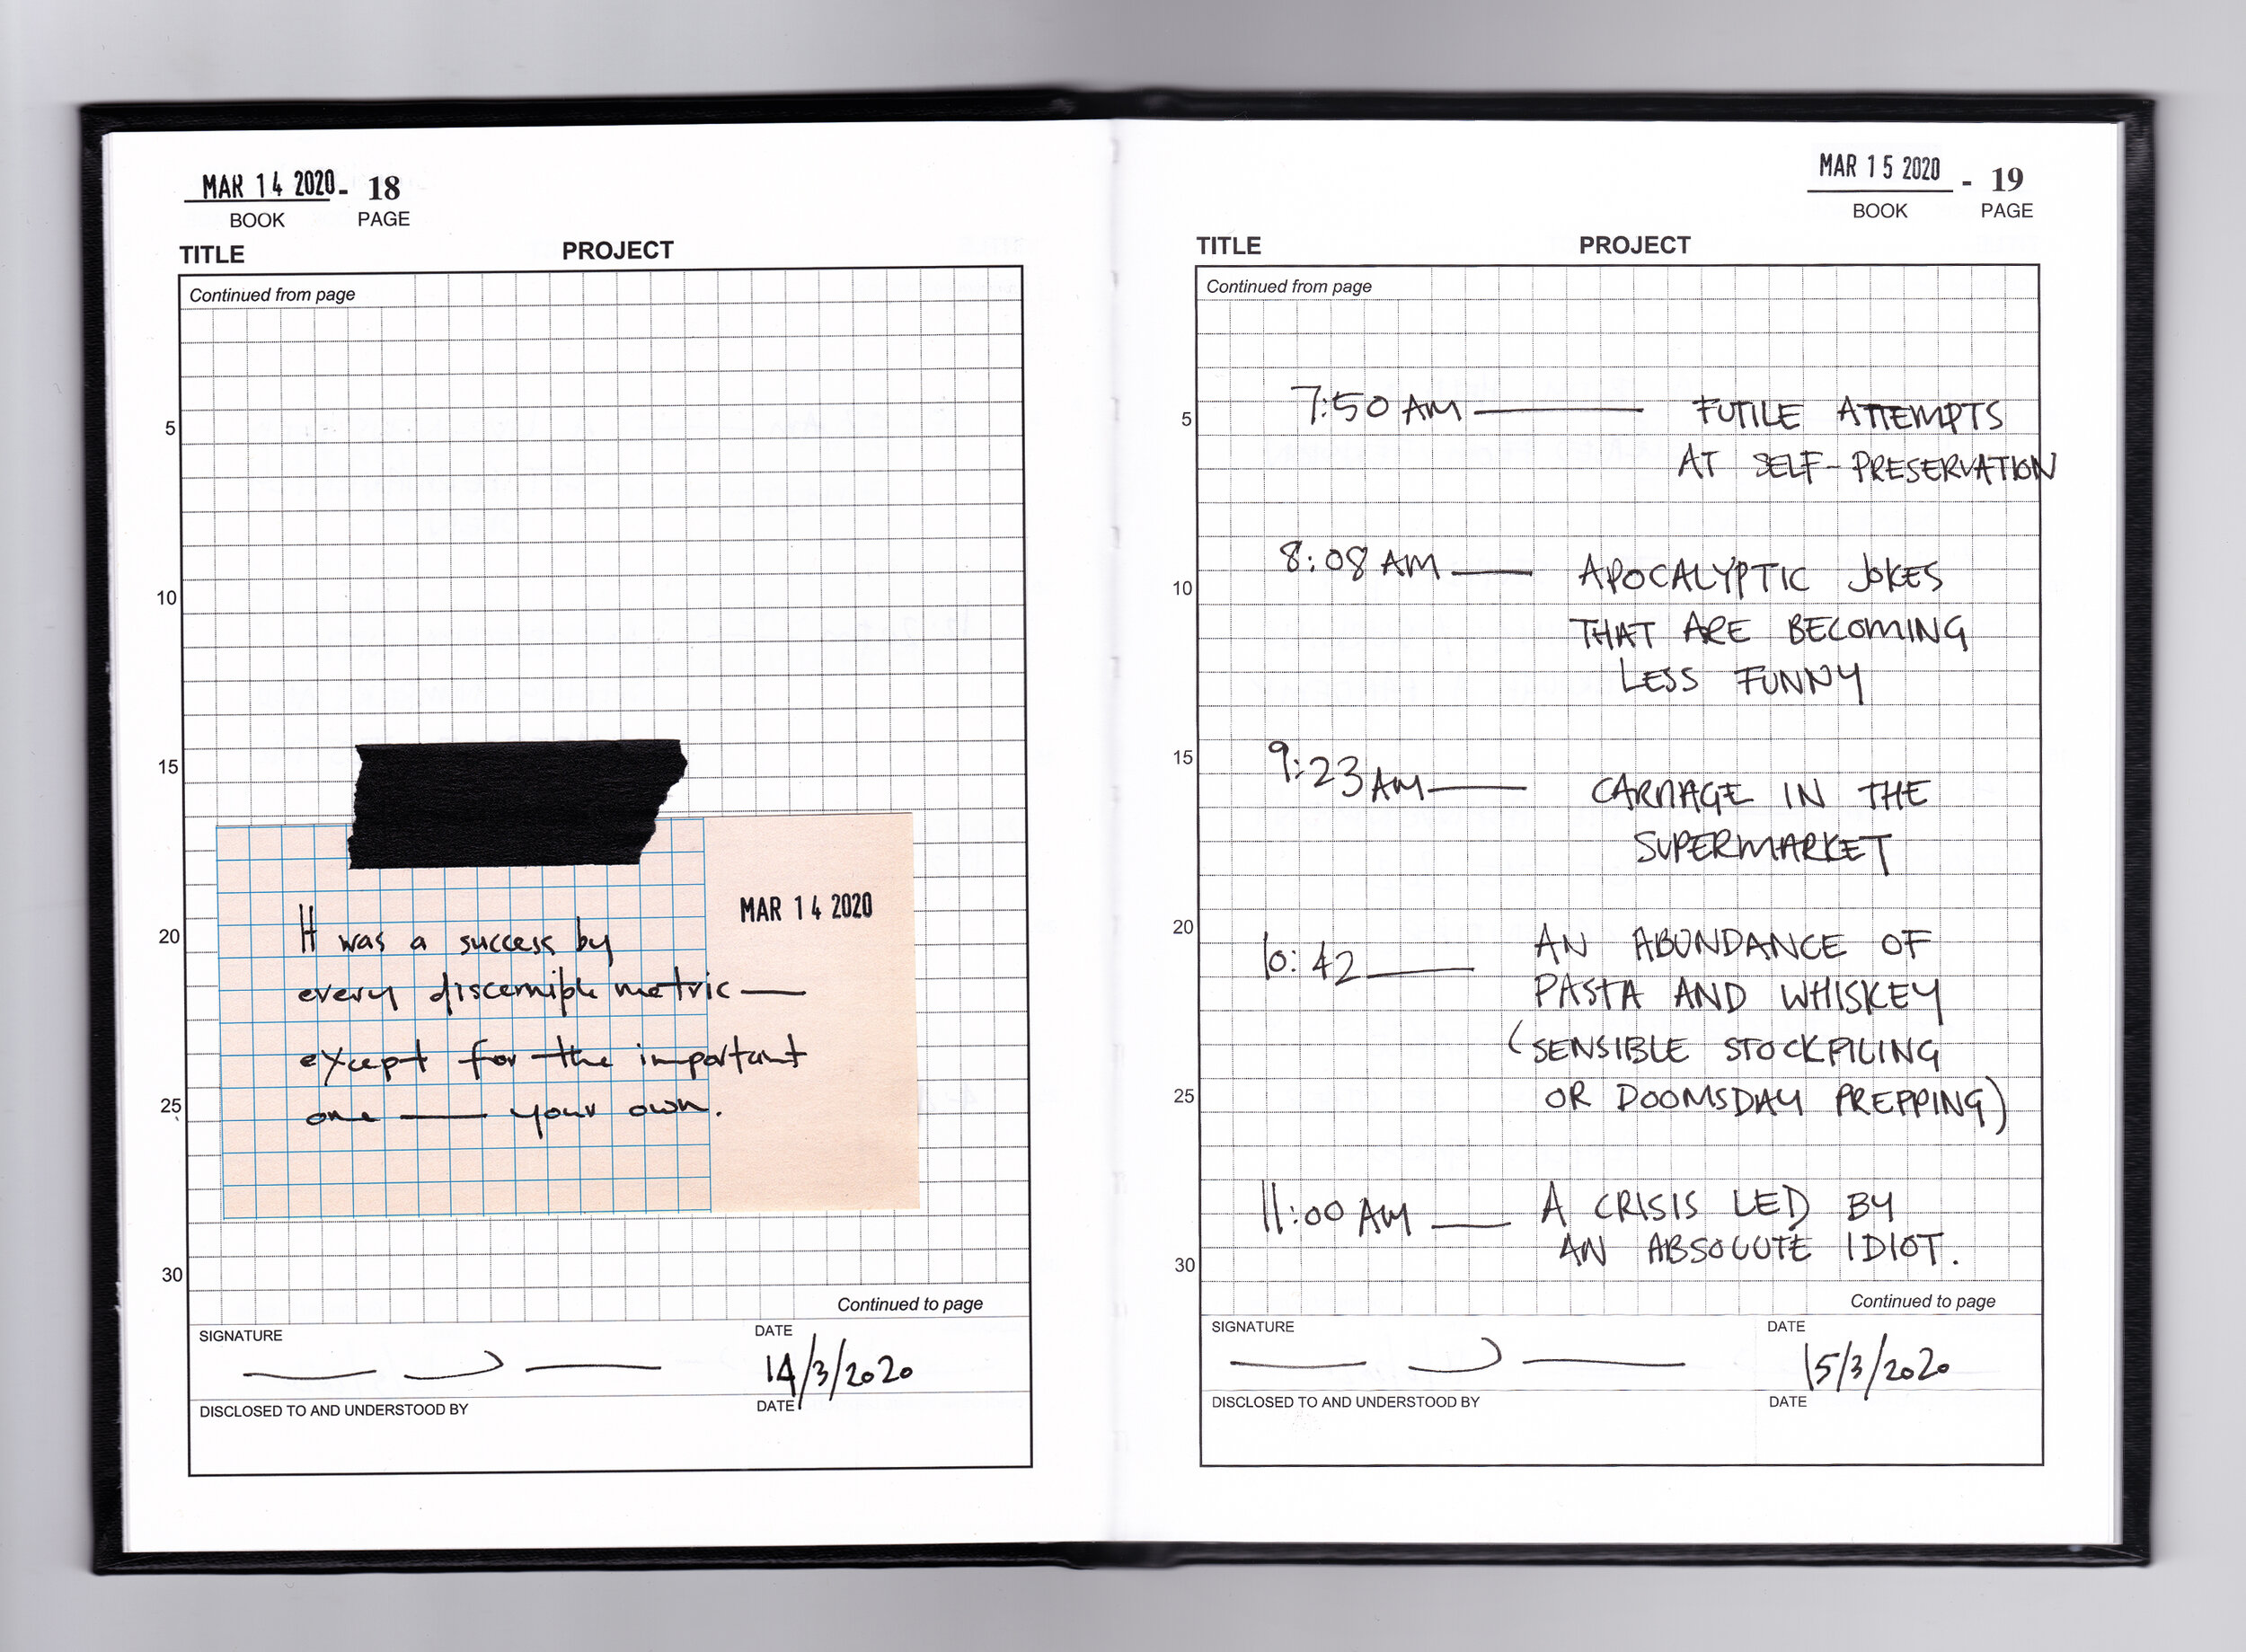 MAR 14 2020 - 18
BOOK PAGE
TITLE PROJECT
Continued from page
5
10
15
20
25
30
MAR 14 2020
It was a success by
every discernible metric —
except for the important
one — your own.
Continued to page
SIGNATURE DATE
14/3/2020
DISCLOSED TO AND UNDERSTOOD BY DATE
MAR 15 2020 - 19
BOOK PAGE
TITLE PROJECT
Continued from page
5
10
15
20
25
30
7:50 AM — FUTILE ATTEMPTS
AT SELF-PRESERVATION
8:08 AM — APOCALYPTIC JOKES
THAT ARE BECOMING
LESS FUNNY
9:23 AM — CARNAGE IN THE
SUPERMARKET
10:42 — AN ABUNDANCE OF
PASTA AND WHISKEY
(SENSIBLE STOCKPILING
OR DOOMSDAY PREPPING)
11:00 AM — A CRISIS LED BY
AN ABSOLUTE IDIOT.
Continued to page
SIGNATURE DATE
15/3/2020
DISCLOSED TO AND UNDERSTOOD BY DATE